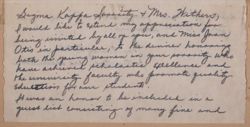 Sigma Kappa Sorority & Mrs. Withers,
I would like to extend my appreciation for
being invited by all of you, and Miss Joan
Otis in particular, to the dinner honoring
both the young women in your sorority who
have achieved scholastic excellence and
the university faculty who promote quality
education for our students.
It was an honor to be included in a
guest list consisting of many fine and